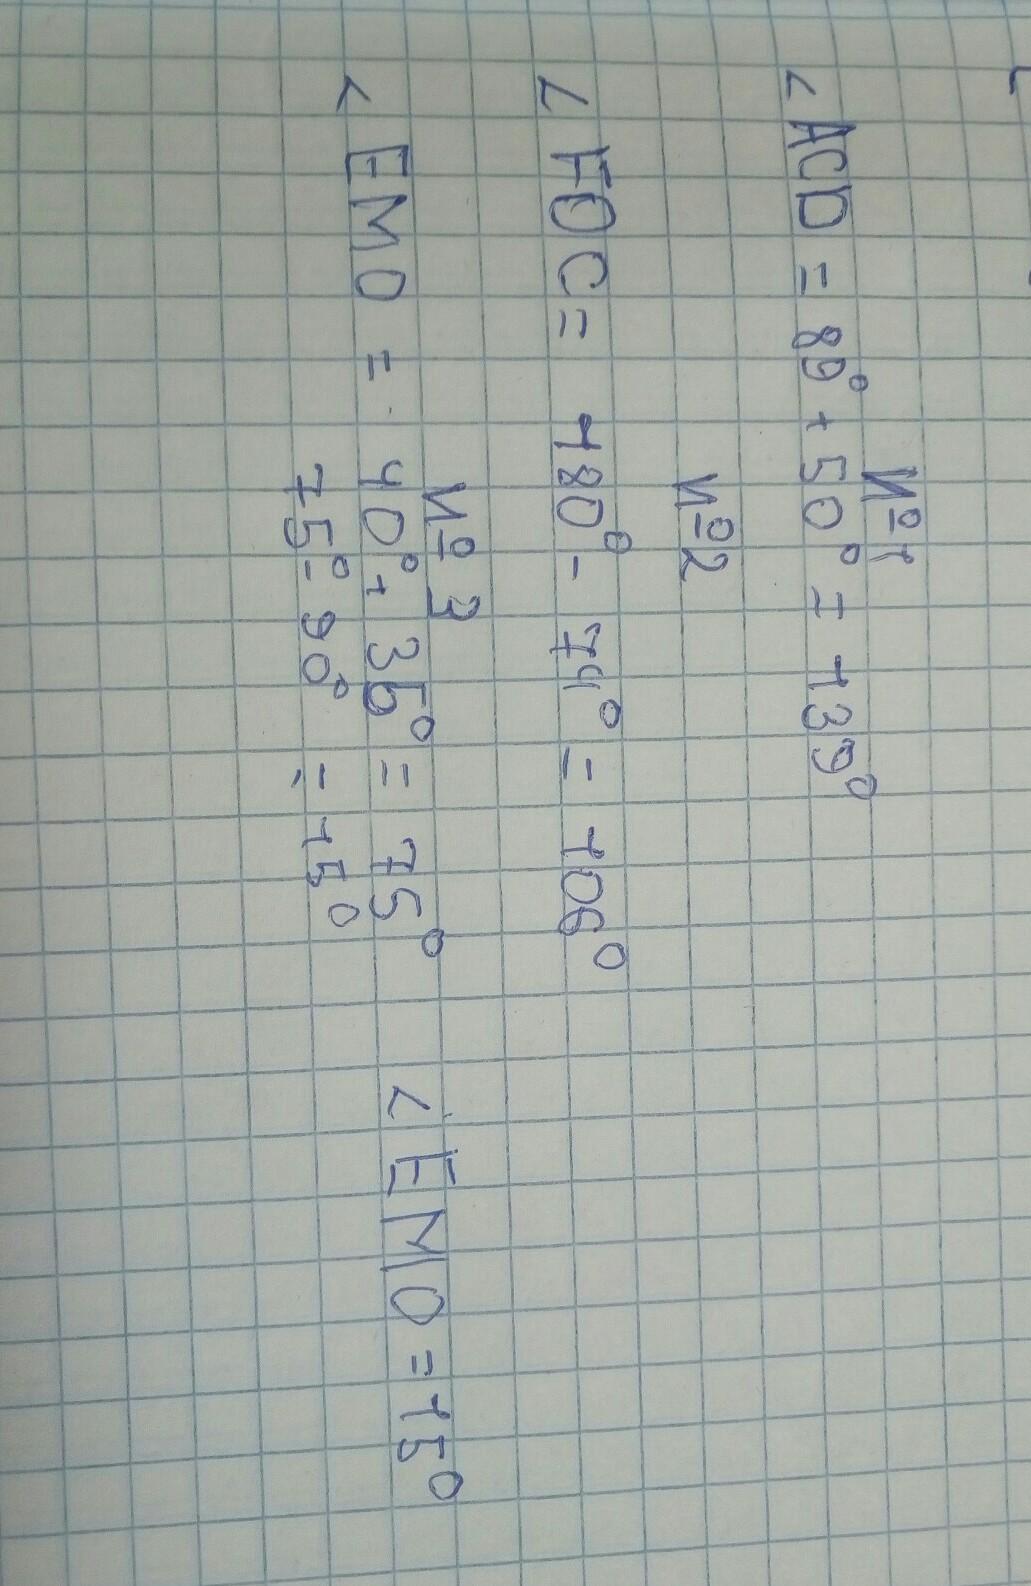 №1
∠ACD = 89° + 50° = 139°
№2
∠FOC = 180° - 74° = 106°
№3
∠EMO = 40° + 35° = 75° ∠EMO = 15°
75° - 90° = 15°